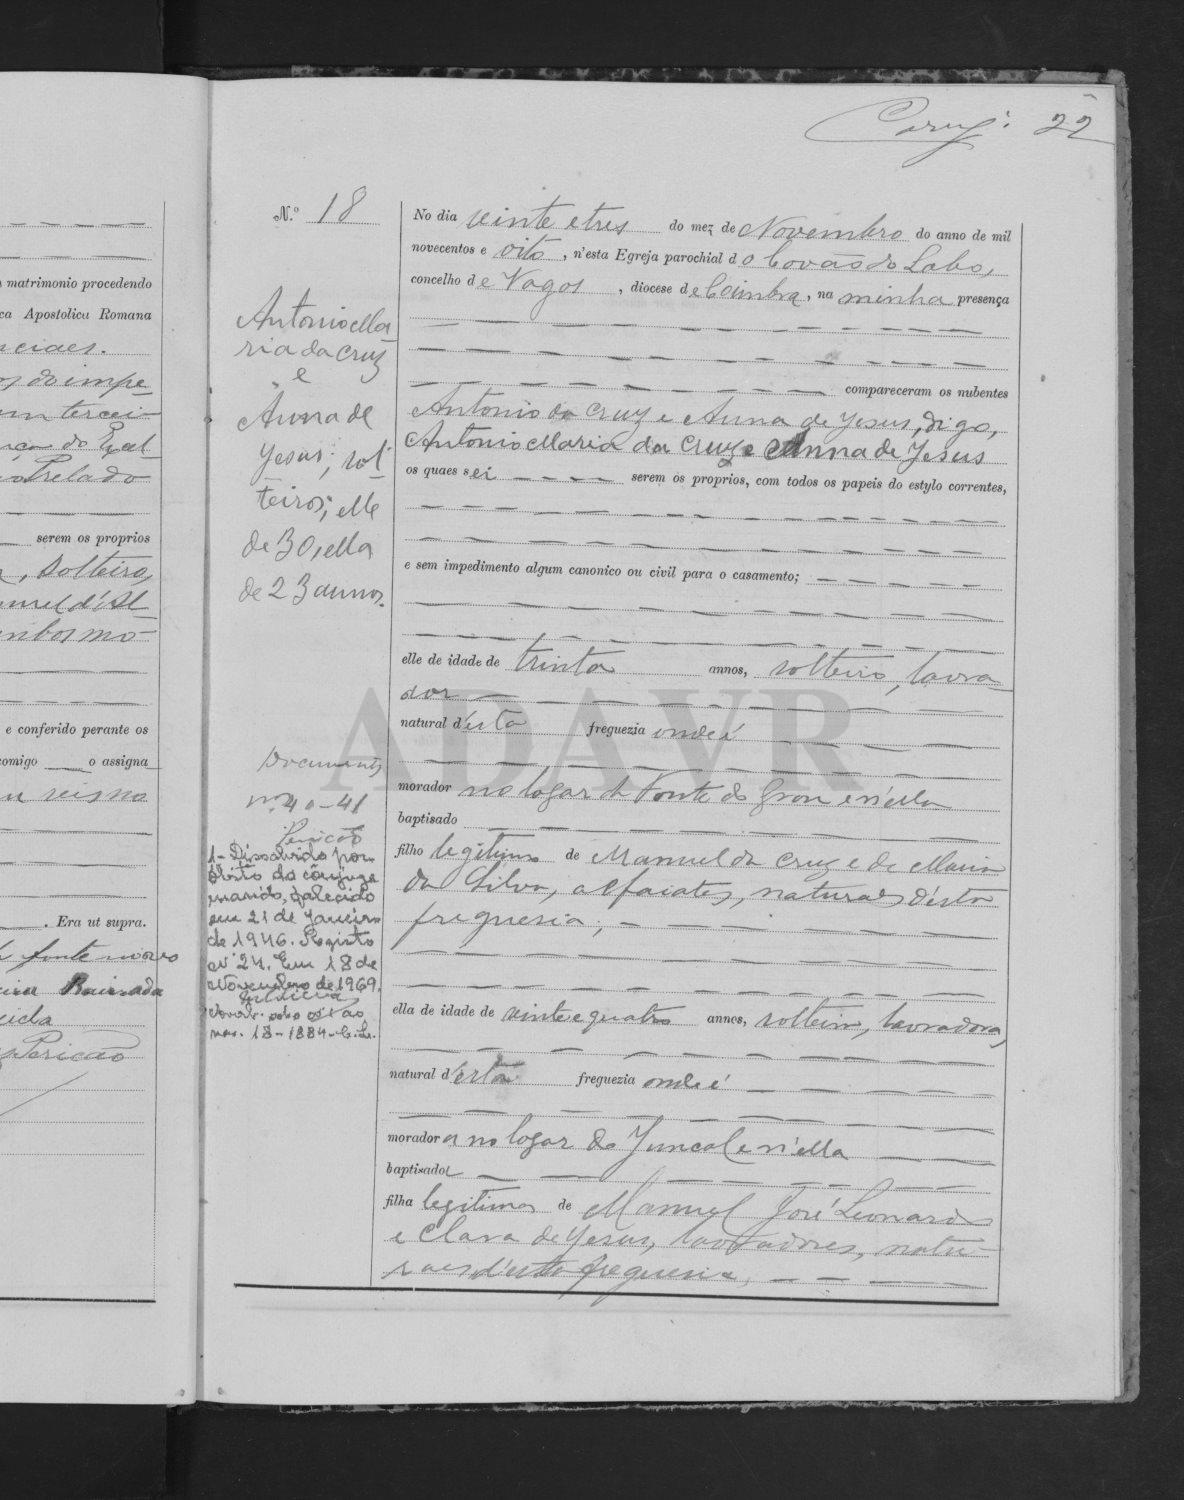 matrimonio procedendo
ca Apostolica Romana
nciaes.
os do impe-
um tercei-
nça do Excel-
Prelado
serem os proprios
, solteira,
nuel d'Al-
mbos mo-
e conferido perante os
comigo o assigna
reis na
. Era ut supra.
Pericão
22
N.º 18
Antonio Ma
ria da Cruz
e
Anna de
Jesus; sol
teiros; elle
de 30, ella
de 23 annos.
Documentos
nº 40-41
Pericão
1- Dissolvido por
óbito do cônjuge
marido, falecido
em 21 de Janeiro
de 1946. Registo
nº 24. Em 18 de
Novembro de 1969.
No dia veinte e tres do mez de Novembro do anno de mil
novecentos e oito, n'esta Egreja parochial do Covão do Lobo,
concelho de Vagos, diocese de Coimbra, na minha presença
compareceram os nubentes
Antonio da Cruz e Anna de Jesus, digo,
Antonio Maria da Cruz e Anna de Jesus
os quaes sei serem os proprios, com todos os papeis do estylo correntes,
e sem impedimento algum canonico ou civil para o casamento;
elle de idade de trinta annos, solteiro, lavra-
dor
natural d'esta freguezia onde é
morador no logar da Fonte do Grou e n'ella
baptisado
filho legitimo de Manuel da Cruz e de Maria
da Silva, alfaiates, naturaes d'esta
freguesia;
ella de idade de veinte e quatro annos, solteira, lavradora,
natural d'esta freguezia onde é
moradora no logar do Juncal e n'ella
baptisada
filha legitima de Manuel José Leonardo
e Clara de Jesus, lavradores, natu-
raes d'esta freguesia,
ADAVR